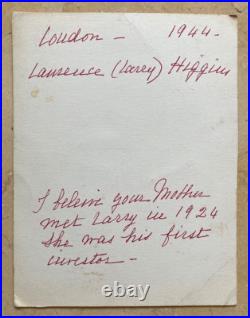 London - 1944-
Laurence (Larry) Higgins
I beleive your Mother
met Larry in 1924
She was his first
investor -